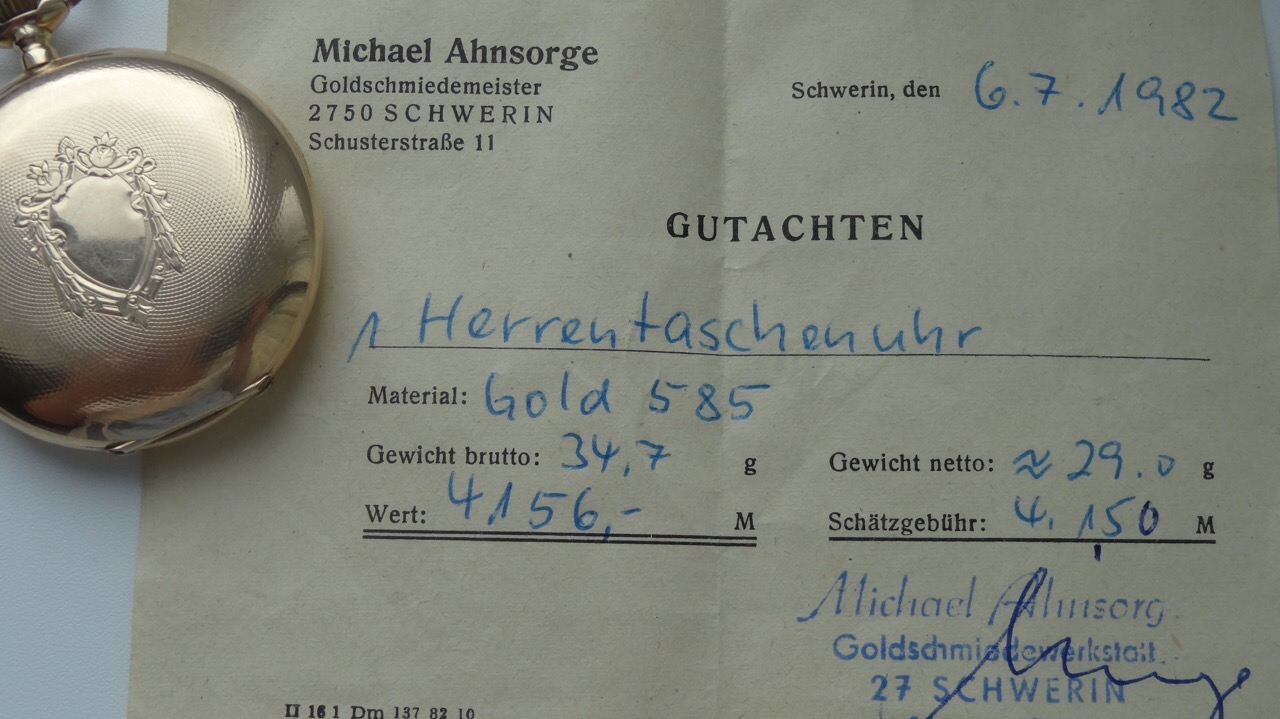 Michael Ahnsorge
Goldschmiedemeister
2750 SCHWERIN
Schusterstraße 11
Schwerin, den 6.7.1982
GUTACHTEN
1 Herrentaschenuhr
Material: Gold 585
Gewicht brutto: 34,7 g Gewicht netto: ≈ 29.0 g
Wert: 4156,- M Schätzgebühr: 4.150 M
Michael Ahnsorg
Goldschmiedewerkstatt
27 SCHWERIN
II 16 1 Dm 137 82 10